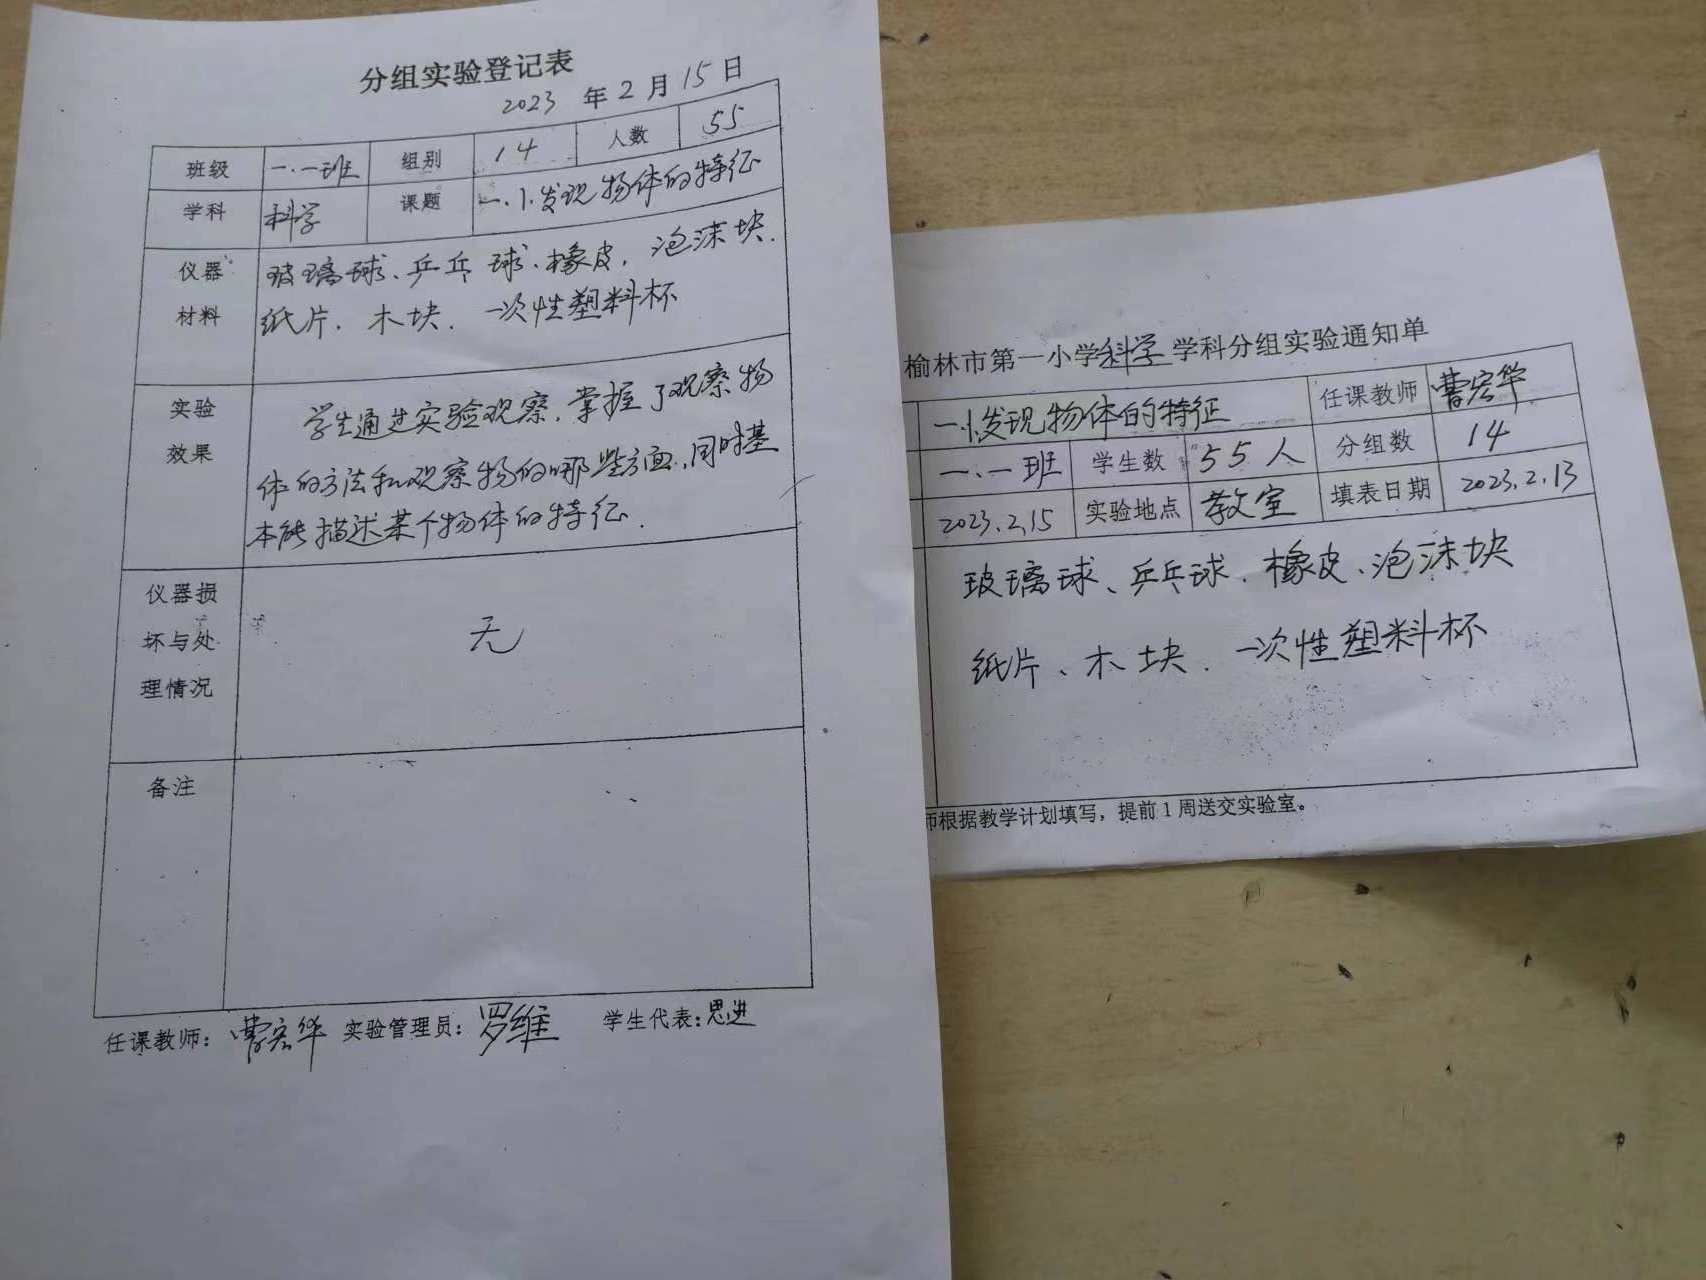 分组实验登记表
2023 年 2 月 15 日
班级 一.一班 组别 14 人数 55
学科 科学 课题 一.1.发现物体的特征
仪器 玻璃球、乒乓球、橡皮、泡沫块、
材料 纸片、木块、一次性塑料杯
实验 学生通过实验观察,掌握了观察物
效果 体的方法和观察物的哪些方面,同时基
本能描述某个物体的特征.
仪器损
坏与处 无
理情况
备注
任课教师: 曹宏华 实验管理员: 罗维 学生代表: 思进
榆林市第一小学科学学科分组实验通知单
一.1.发现物体的特征 任课教师 曹宏华
一.一班 学生数 55人 分组数 14
2023.2.15 实验地点 教室 填表日期 2023.2.13
玻璃球、乒乓球、橡皮、泡沫块
纸片、木块、一次性塑料杯
师根据教学计划填写,提前1周送交实验室。